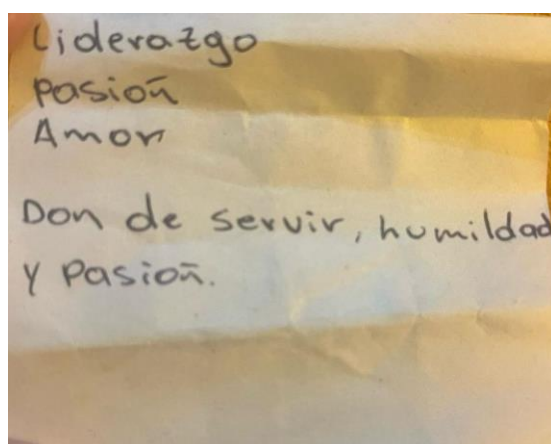 Liderazgo
Pasión
Amor
Don de servir, humildad
y Pasión.